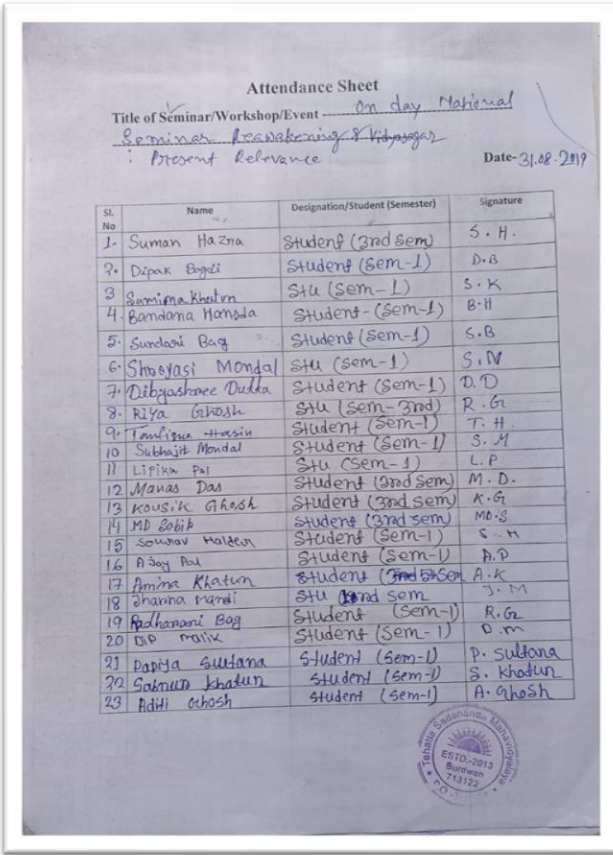 Attendance Sheet
Title of Seminar/Workshop/Event - On day National
Seminar Reawakening & Vidyasagar
: Present Relevance Date- 31.08.2019
Sl. No Name Designation/Student (Semester) Signature
1. Suman Hazra Student (3rd Sem) S.H.
2. Dipak Bagdi Student (Sem-1) D.B
3 Samima Khatun Stu (Sem-1) S.K
4. Bandana Hansda Student-(Sem-1) B.H
5. Sundari Bag Student (Sem-1) S.B
6. Shreyasi Mondal Stu (Sem-1) S.M
7. Dibyashree Dutta Student (Sem-1) D.D
8. Riya Ghosh Stu (Sem-3rd) R.G
9. Hasin Student (Sem-1) T.H.
10 Subhajit Mondal Student (Sem-1) S.M
11 Lipika Pal Stu (Sem-1) L.P
12 Manas Das Student (3rd Sem) M.D.
13 Kousik Ghosh Student (3rd sem) K.G
14 MD Sobib Student (3rd sem) MD.S
15 Sourav Halder Student (Sem-1) S.H
16 Ajoy Pal Student (Sem-1) A.P
17 Amina Khatun Student Sem A.K
18 Jharna Mandi Stu sem J.M
19 Radharani Bag Student (Sem-1) R.G
20 DIP Malik Student (Sem-1) D.m
21 Papiya Sultana Student (Sem-1) P. Sultana
22 Sabnun Khatun Student (Sem-1) S. Khatun
23 Aditi Ghosh Student (Sem-1) A. Ghosh
Tehatta Sadananda Mahavidyalaya
ESTD.-2013
Burdwan
713122